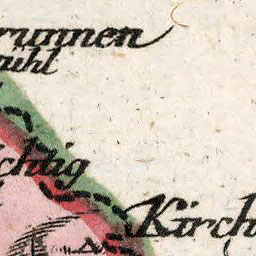 runnen
ühl
chtig
Kirch